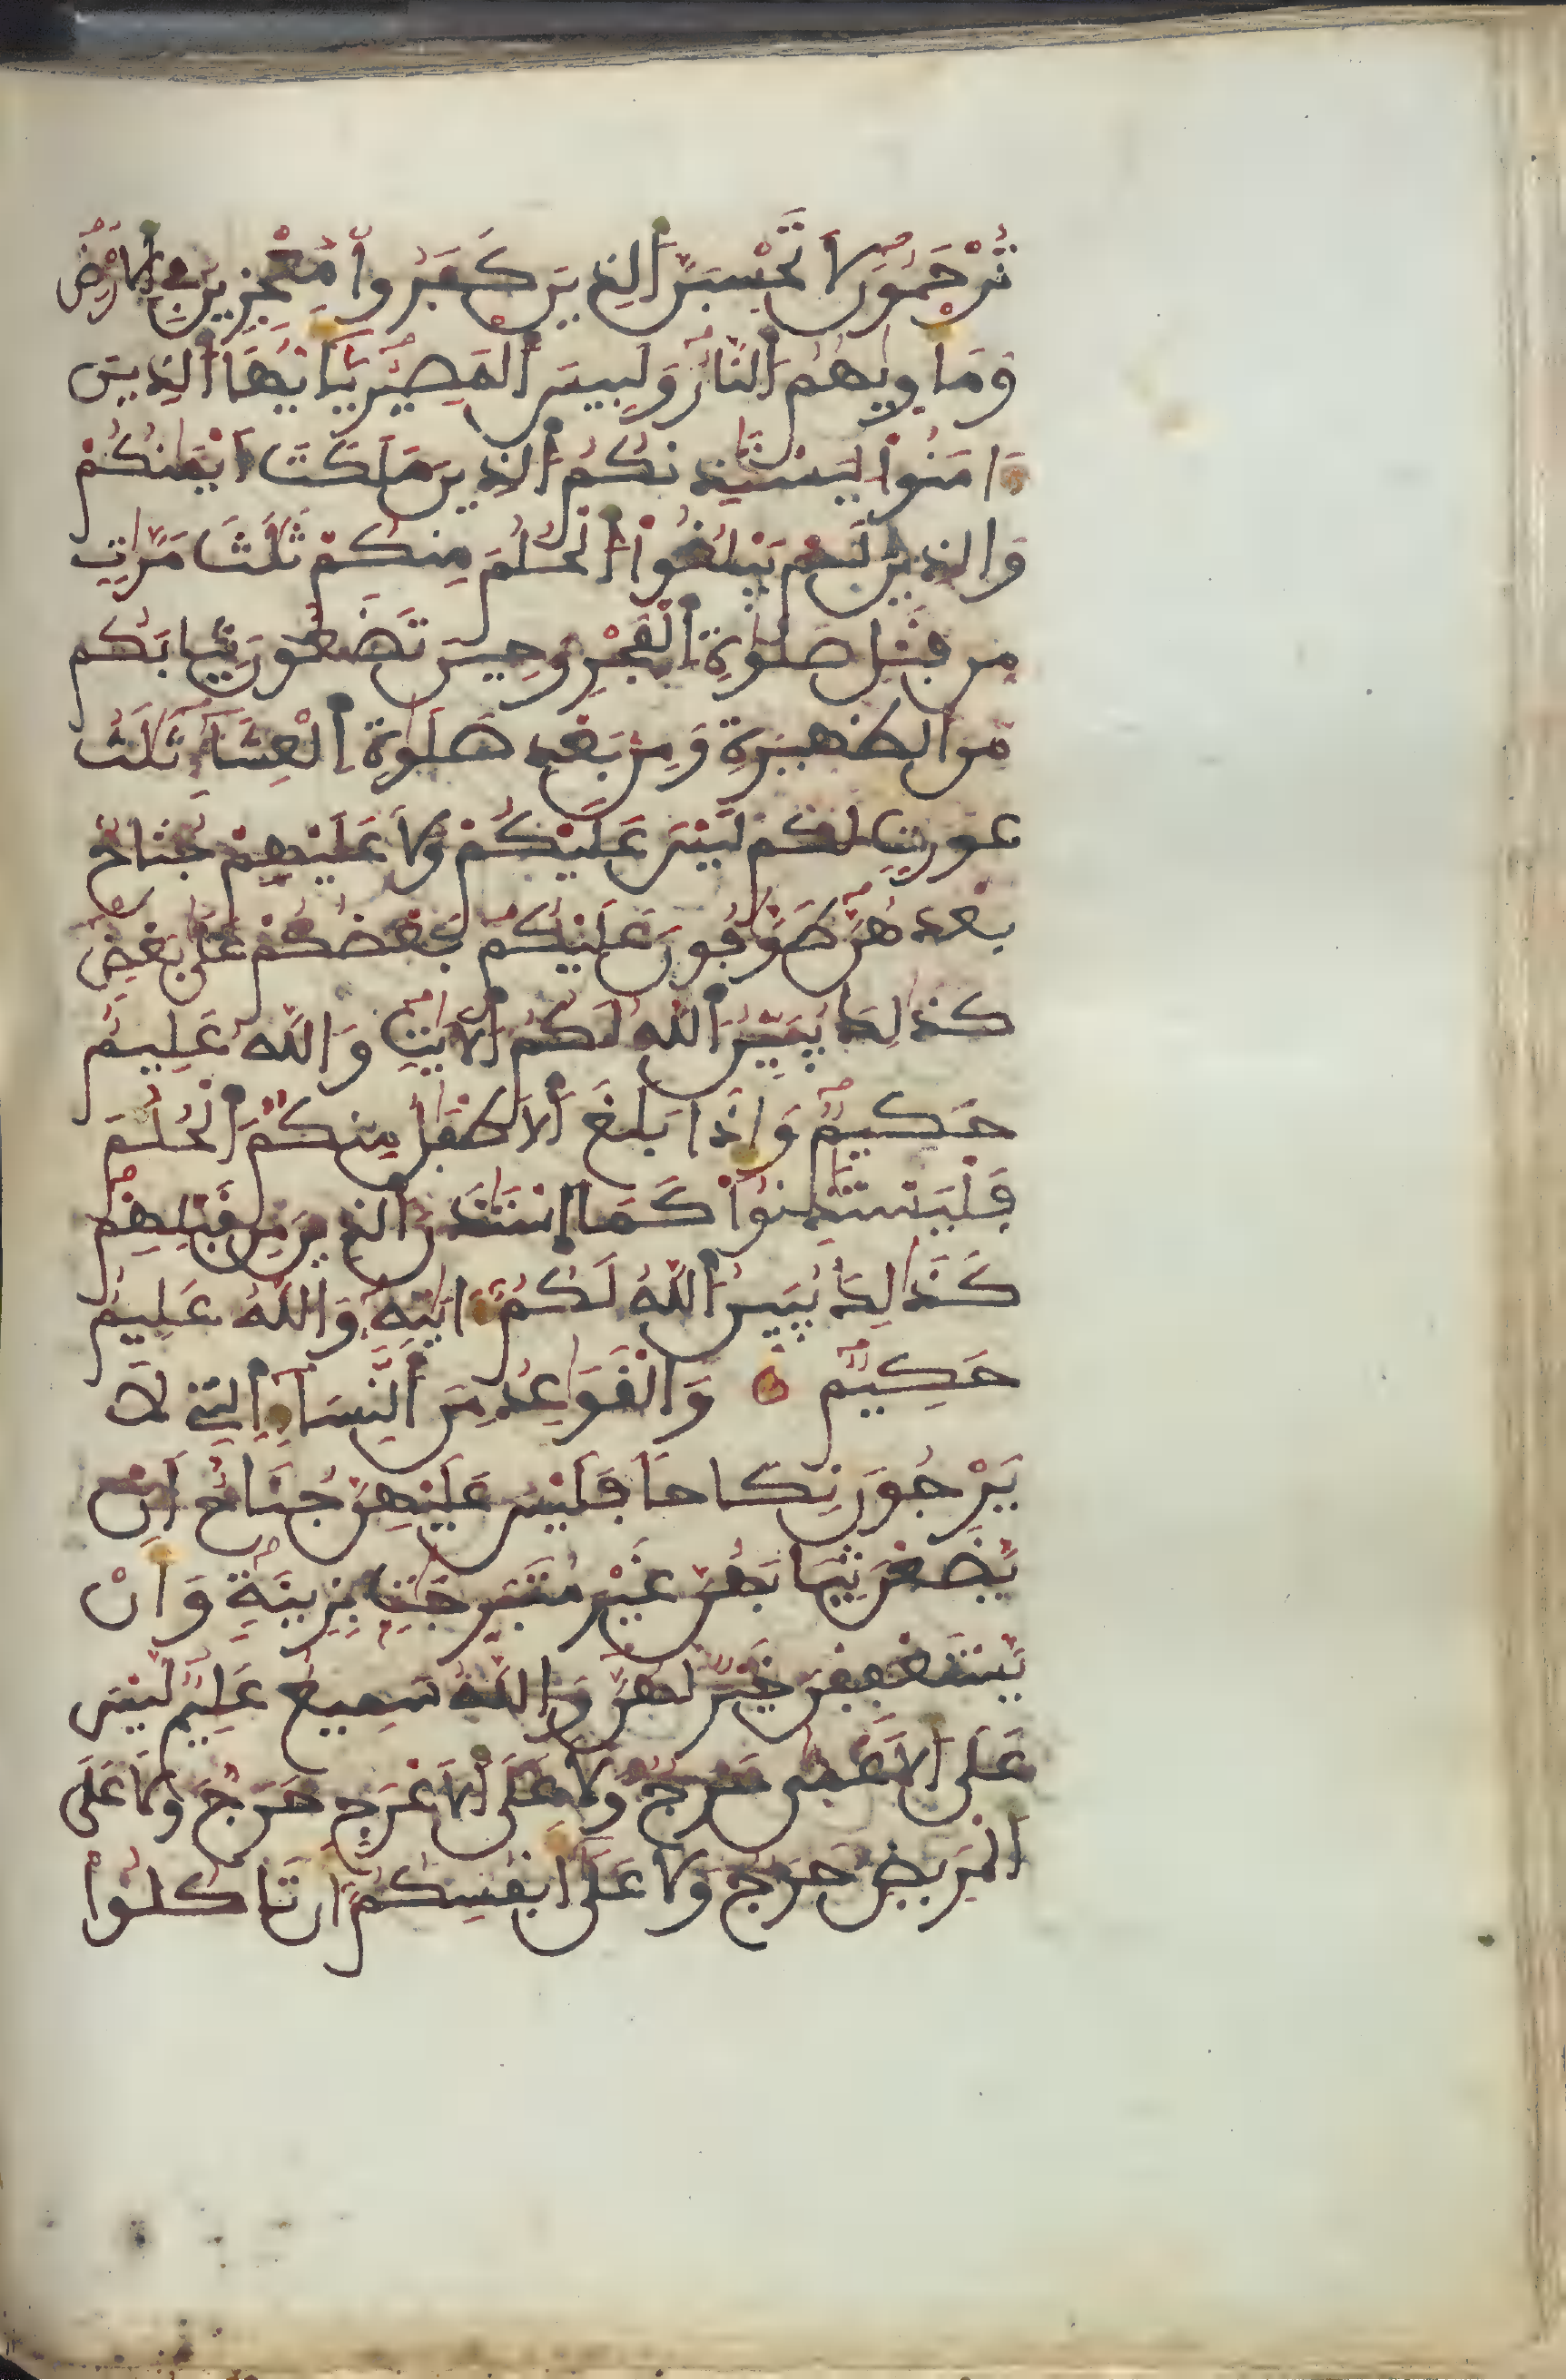 تُرْحَمُونَ لَا تَحْسِبَنَّ ٱلذِينَ كَفَرُوا مُعْجِزِينَ فِي ٱلَارْضِ
وَمَأْوِيٰهُمُ ٱلنَّارُ وَلَبِيسَ ٱلْمَصِيرُ يَٰٓأَيُّهَا ٱلذِينَ
ءَامَنُوا لِيَسْتَٰذِنكُمُ ٱلذِينَ مَلَكَتَ اَيْمَٰنُكُمْ
وَالذِينَ لَمْ يَبْلُغُوا ٱلْحُلُمَ مِنكُمْ ثَلَٰثَ مَرَّٰتٍ
مِن قَبْلِ صَلَوٰةِ ٱلْفَجْرِ وَحِينَ تَضَعُونَ ثِيَابَكُم
مِنَ ٱلظَّهِيرَةِ وَمِنْ بَعْدِ صَلَوٰةِ ٱلْعِشَآءِ ثَلَٰثُ
عَوْرَٰتٍ لَكُمْ لَيْسَ عَلَيْكُمْ وَلَا عَلَيْهِمْ جُنَاحٌ
بَعْدَهُنَّ طَوَّٰفُونَ عَلَيْكُم بَعْضُكُمْ عَلَىٰ بَعْضٍ
كَذَٰلِكَ يُبَيِّنُ ٱللَّهُ لَكُمُ ٱلَايَٰتِ وَاللَّهُ عَلِيمٌ
حَكِيمٌ وَإِذَا بَلَغَ ٱلَاطْفَٰلُ مِنكُمُ ٱلْحُلُمَ
فَلْيَسْتَٰذِنُوا كَمَا ٱسْتَٰذَنَ ٱلذِينَ مِن قَبْلِهِمْ
كَذَٰلِكَ يُبَيِّنُ ٱللَّهُ لَكُمُ ءَايَٰتِهِ وَاللَّهُ عَلِيمٌ
حَكِيمٌ وَالْقَوَٰعِدُ مِنَ ٱلنِّسَآءِ ٱلٰتِي لَا
يَرْجُونَ نِكَاحاً فَلَيْسَ عَلَيْهِنَّ جُنَاحٌ اَنْ
يَضَعْنَ ثِيَابَهُنَّ غَيْرَ مُتَبَرِّجَٰتٍ بِزِينَةٍ وَأَنْ
يَسْتَعْفِفْنَ خَيْرٌ لَهُنَّ وَاللَّهُ سَمِيعٌ عَلِيمٌ لَيْسَ
عَلَى ٱلَاعْمَىٰ حَرَجٌ وَلَا عَلَى ٱلَاعْرَجِ حَرَجٌ وَلَا عَلَى
ٱلْمَرِيضِ حَرَجٌ وَلَا عَلَىٰٓ أَنفُسِكُمُ أَن تَاكُلُوا